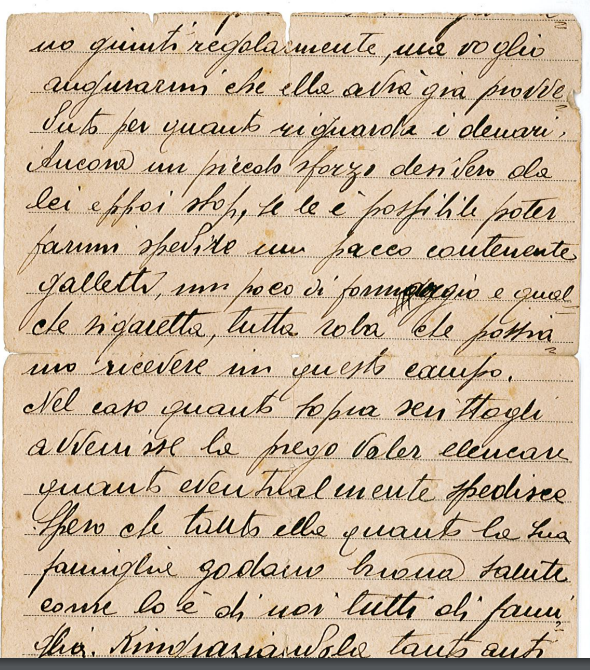 no giunti regolarmente, ma voglio
augurarmi che ella avrà già provve=
duto per quanto riguarda i denari.
Ancora un piccolo sforzo desidero da
lei e ppoi stop, se le è possibile poter
farmi spedire un pacco contenente
galletti, un poco di formaggio e qual=
che sigaretta, tutta roba che possia=
mo ricevere in questo campo.
Nel caso quanto sopra scrittogli
avvenisse la prego valer elencare
quanto eventualmente spedisce
Spero che tanto ella quanto la sua
famiglia godano buona salute
come lo è di noi tutti di fami=
glia. Ringraziandola tanto anti